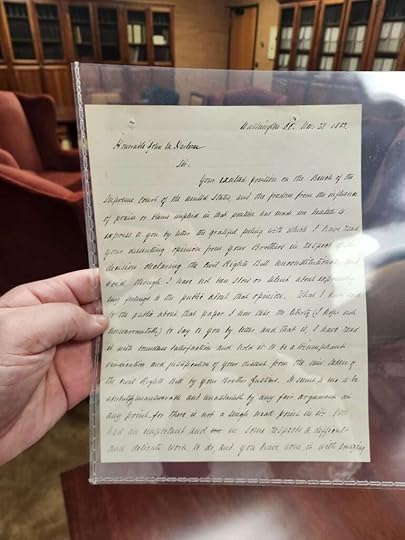 Washington D.C. Nov. 27. 1883
Honorable John M. Harlan
Sir:
Your exalted position on the Bench of the
Supreme Court of the United States, and the freedom from the influence
of praise or blame implied in that position has made me hesitate to
express to you by letter the grateful feeling with which I have read
your dissenting opinion from your Brothers in respect of the
decision declaring the Civil Rights Bill unconstitutional and
void, though I have not been slow or silent about expressing
my feelings to the public about that opinion. What I have said
to the public about that paper I now take the liberty (I hope not
unwarrantable) to say to you by letter and that is, I have read
it with boundless satisfaction and hold it to be a triumphant
vindication and justification of your dissent from the view taken of
the Civil Rights Bill by your Brother Justices. It seems to me to be
absolutely unanswerable and unassailable by any fair argument on
any point, for there is not a single weak point in it. You
had an important and in some respects a difficult
and delicate work to do, and you have done it with amazing